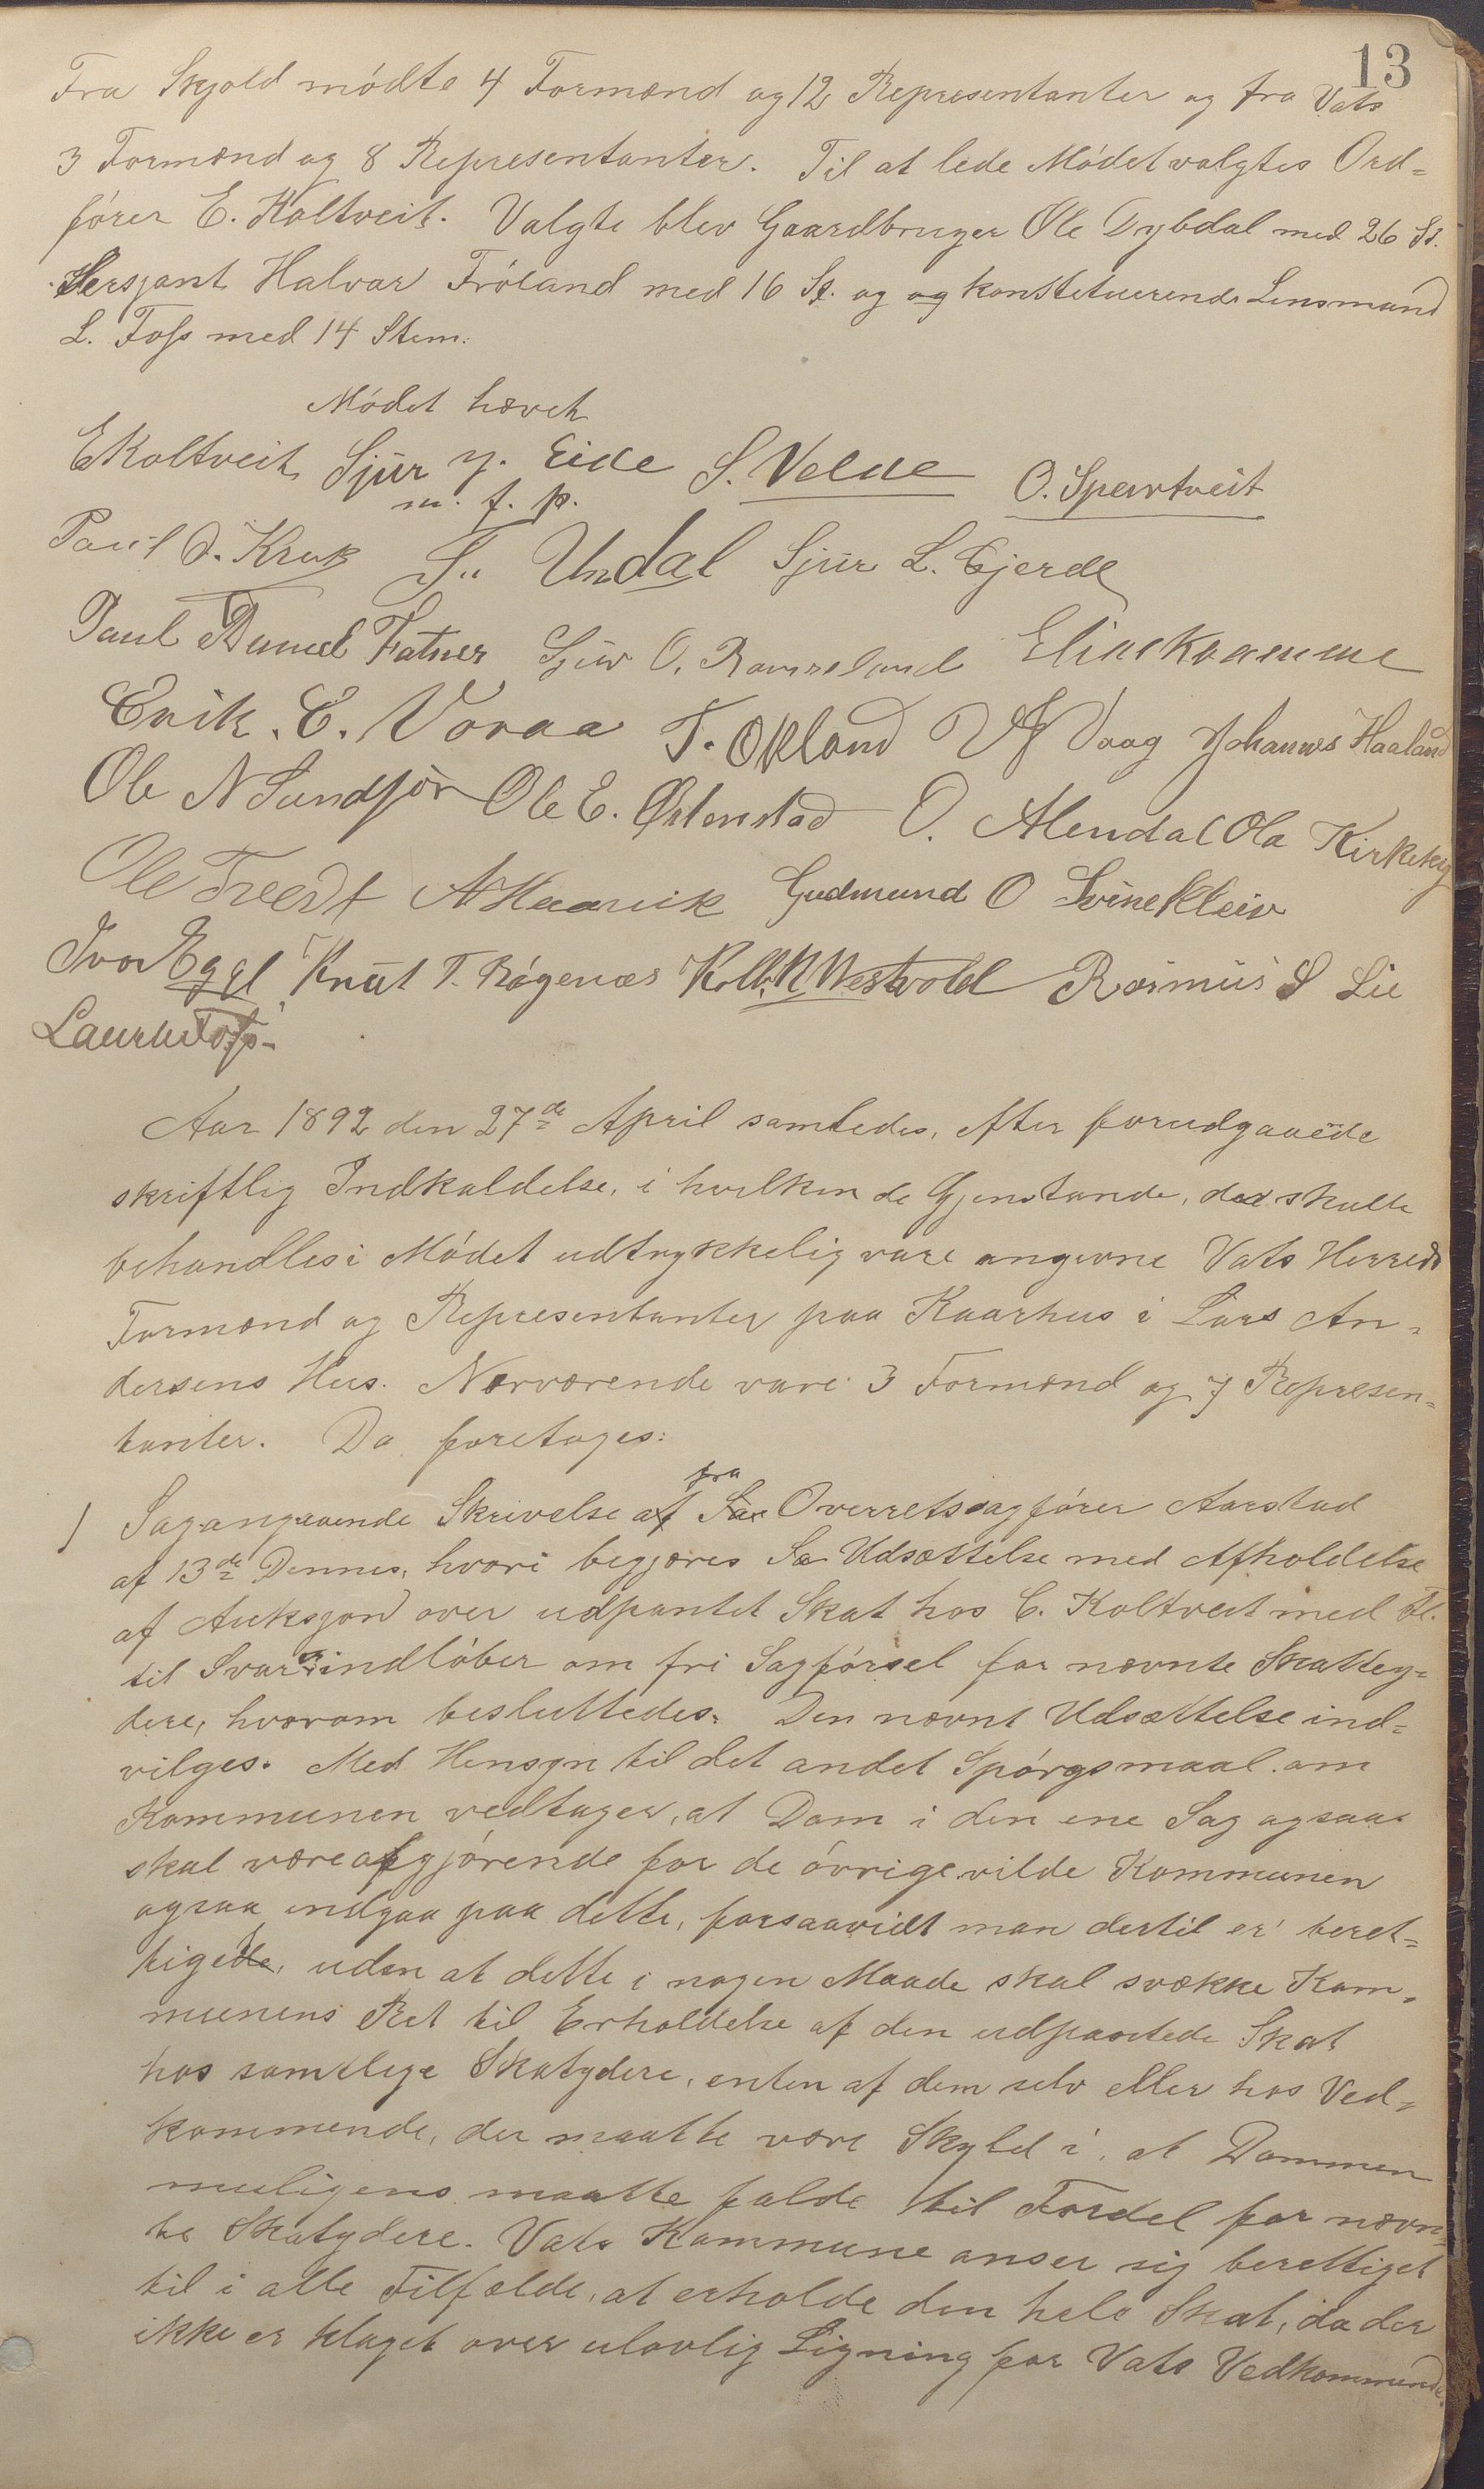 13
Fra Skjold mødte 4 Formænd og 12 Representanter og fra Vats
3 Formænd og 8 Representanter. Til at lede Mødet valgtes Ord=
fører E. Koltveit. Valgte blev Gaardbruger Ole Dybdal med 26 St.
Sersjant Halvar Frøland med 16 St. og og konstetuerende Lensmand
L. Foss med 14 Stem.
Mødet hævet
E Koltveit Sjur J. Eide S. Velde O. Spertveit
m. f. p.
Paul O. Krak Undal Sjur L. Gjerde
Paul Fatner Sjur O. Ramseland Elias Kvamme
Erik. E. Voraa T. Økland Vaag Johannes Haaland
Ole N Sundfør Ole E. Østenstad O. Alendal Ola Kirkeby
Ole Tvedt A Haavik Gudmund O Svinekleiv
Ivar Eggel Knut T. Røgenæs Kolb. N Westvold Rasmus S Lie
Laurits Foss.
Aar 1892 den 27de April samtedes, efter forudgaaede
skriftlig Indkaldelse, i hvilken de Gjenstande, der skulle
behandles i Mødet udtrykkelig vare angivne Vats Herreds
Formænd og Representanter paa Kaarhus i Lars An=
dersens Hus. Nærværende vare 3 Formænd og 7 Represen=
tanter. Da foretages:
1 Sag angaaende Skrivelse af fra Sa Overretssagfører Aarstad
af 13de Dennes, hvori begjæres Sa Udsættelse med Afholdelse
af Auksjon over udpantet Skat hos E. Koltveit med Fl.
til Svar er indløber om fri Sagførsel for nævnte Skattey=
dere, hvorom besluttedes: Den nævnt Udsættelse ind=
vilges. Med Hensyn til det andet Spørgsmaal om
Kommunen vedtager, at Dom i den ene Sag ogsaa
skal være afgjørende for de øvrige vilde Kommunen
ogsaa indgaa paa dette, forsaavidt man dertil er beret=
tigede, uden at dette i nogen Maade skal svække Kom=
munens Ret til Erholdelse af den udpantede Skat
hos samtlige Skatydere, enten af dem selv eller hos Ved=
kommende, der maatte være Skyld i, at Dommen
muligens maatte falde til Fordel for nævn=
te Skatydere. Vats Kommune anser sig berettiget
til i alle Tilfælde, at erholde den hele Skat, da der
ikke er klaget over ulovlig Ligning for Vats Vedkommende.